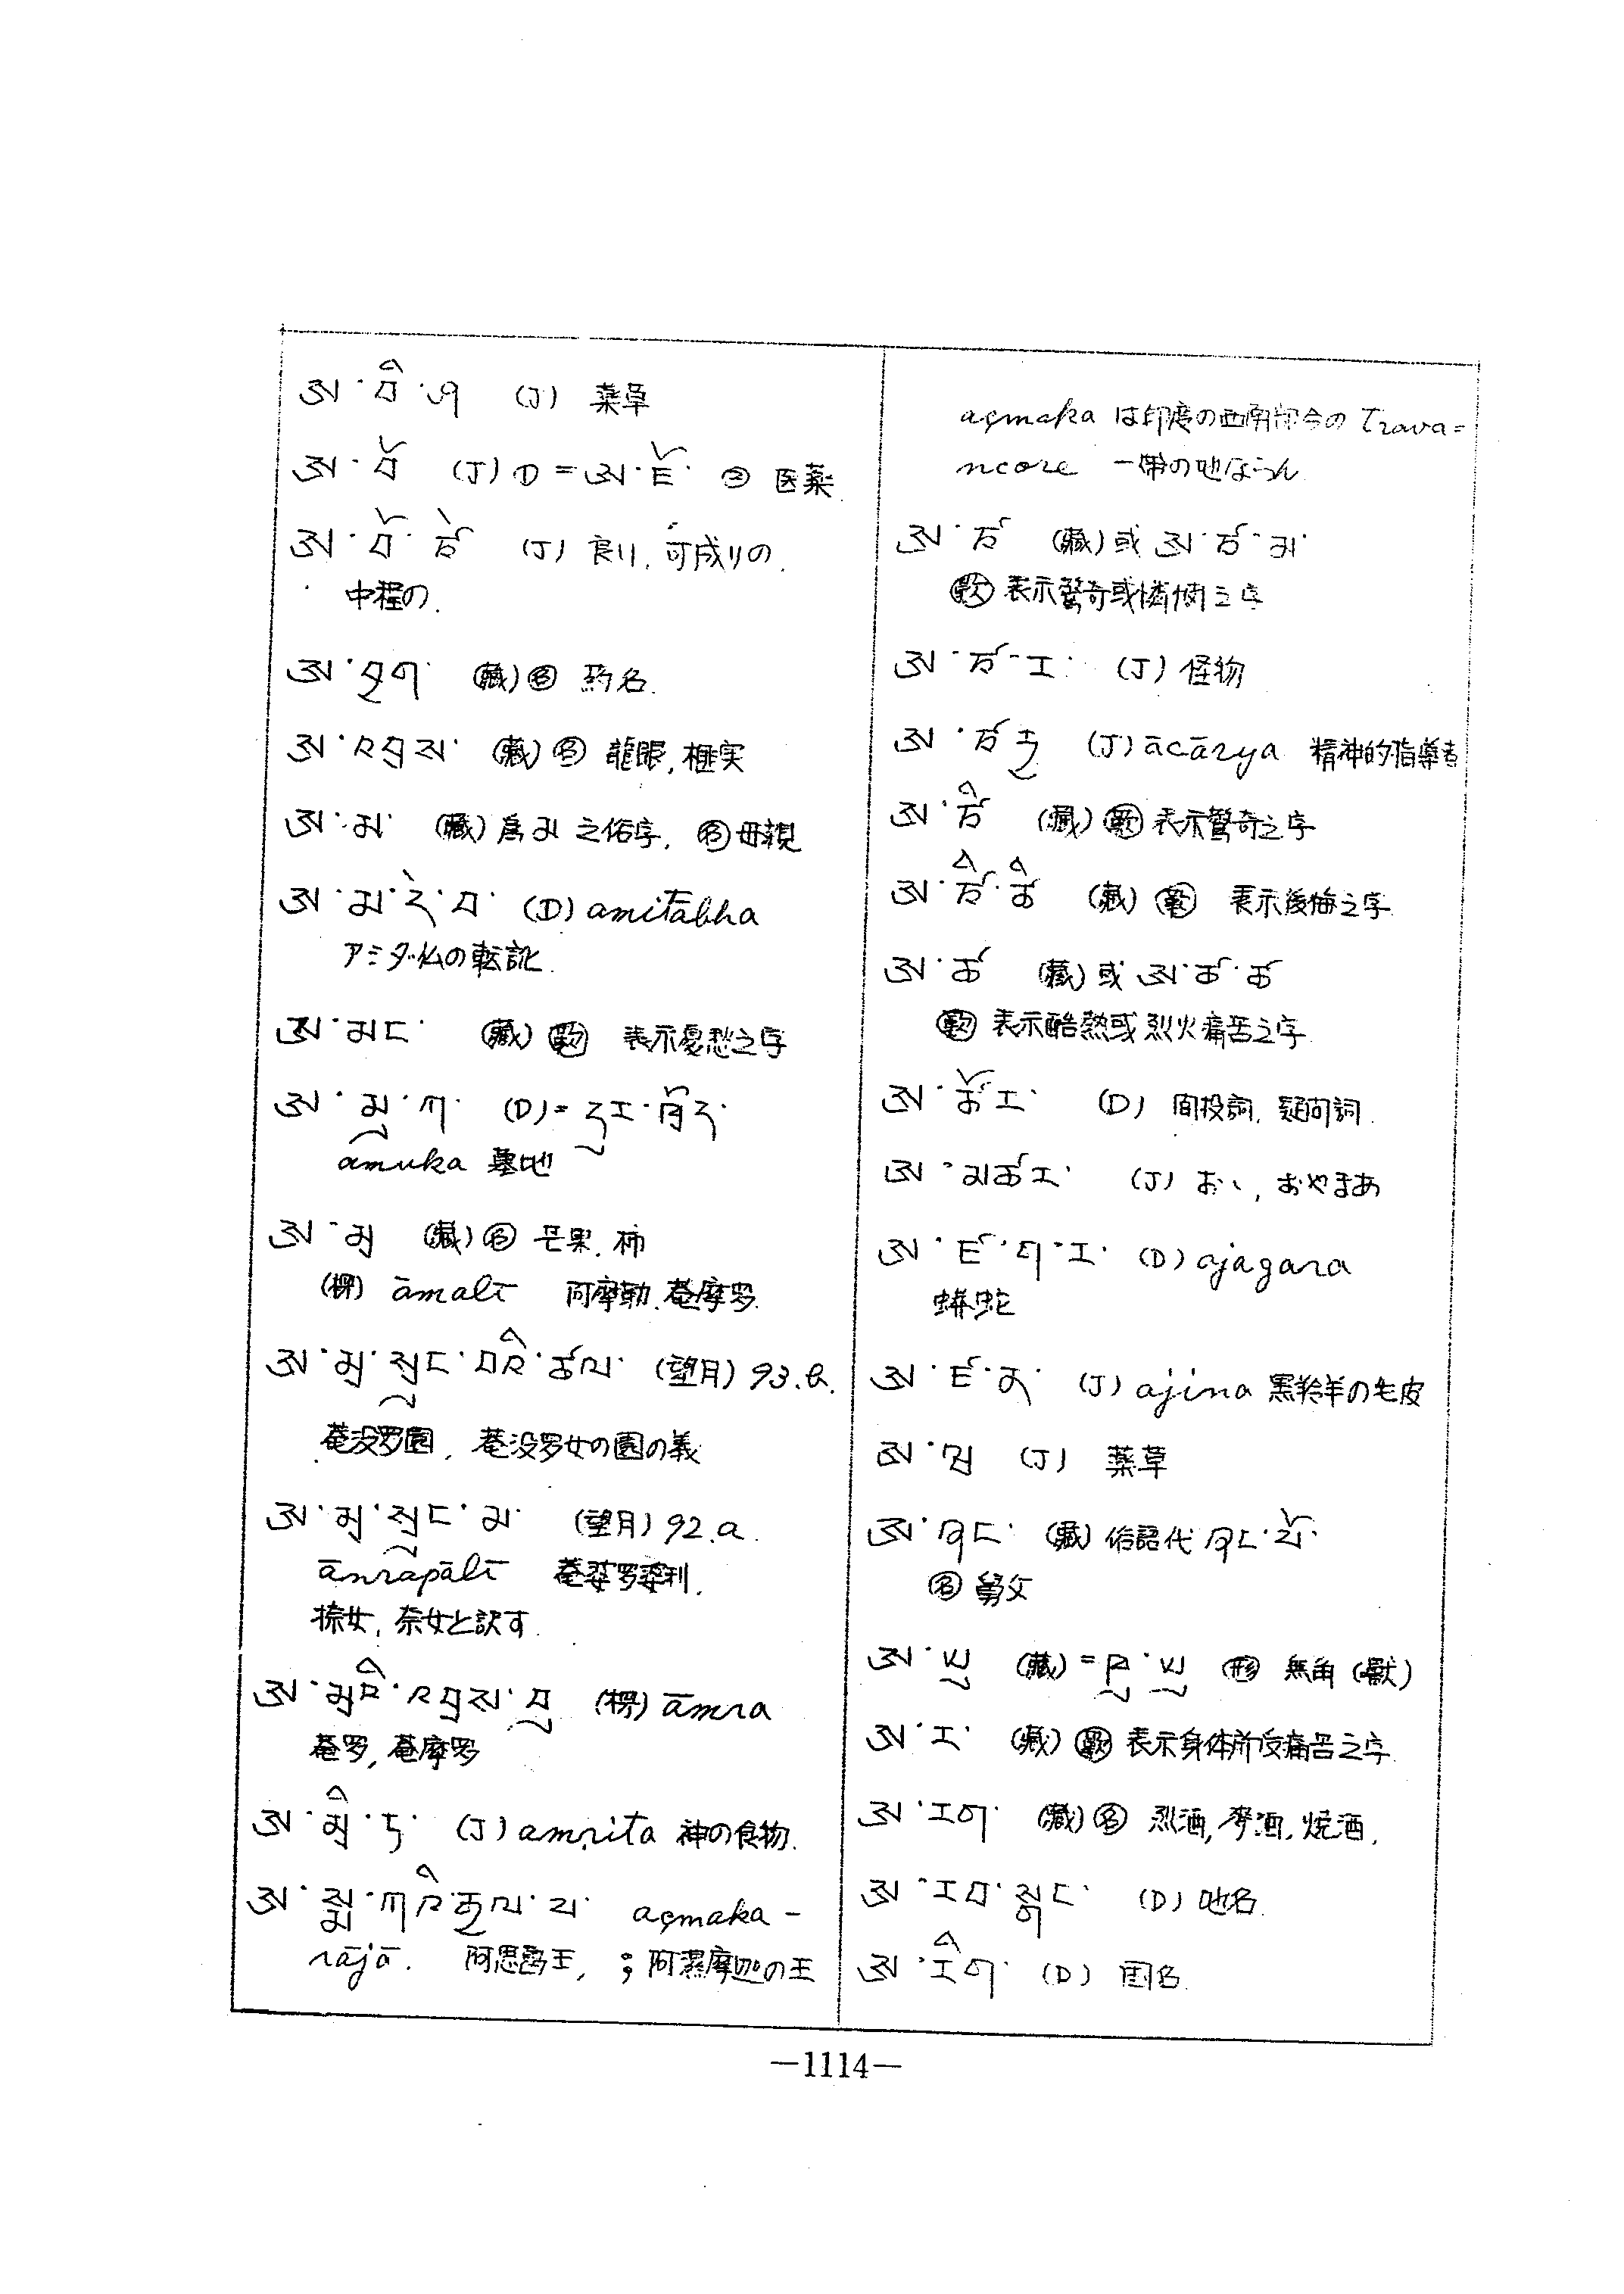 ཨ་བི་ཤ (J) 薬草
ཨ་བོ (J) ① = ཨ་ཇོ་ ② 医薬
ཨ་བོ་ཙེ (J) 良い, 可成りの,
中程の.
ཨ་བྱག་ (藏) 名 药名.
ཨ་འབྲས་ (藏) 名 龍眼, 榧実
ཨ་མ་ (藏) 爲 མ 之俗字, 名 母親
ཨ་མ་དེ་བ་ (D) amitābha
アミダ仏の転訛.
ཨ་མང་ (藏) 歎 表示憂愁之字
ཨ་མུ་ཀ་ (D) = དུར་ཁྲོད་
amuka 墓地
ཨ་མྲ (藏) 名 芒果, 柿
(榜) āmalī 阿摩勒, 菴摩罗.
ཨ་མྲ་སྲུང་བའི་ཚལ་ (望月) 93.a.
菴没罗園, 菴没罗女の園の義
ཨ་མྲ་སྲུང་མ་ (望月) 92.a.
āmrapālī 菴婆罗婆利,
㮈女, 奈女と訳す.
ཨ་མྲའི་འབྲས་བུ (榜) āmra
菴罗, 菴摩罗
ཨ་མྲི་ཏ་ (J) amṛita 神の食物.
ཨ་སྨ་ཀའི་རྒྱལ་པོ་ açmaka-
rājā. 阿思爲王, ; 阿濕摩迦の王
açmaka は印度の西南部今の Trava=
ncore 一帯の地ならん
ཨ་ཙ (藏) 或 ཨ་ཙ་མ་
歎 表示驚奇或憐憫之字
ཨ་ཙ་ར་ (J) 怪物
ཨ་ཙརྱ (J) ācārya 精神的指導者
ཨ་ཙི (藏) 歎 表示驚奇之字
ཨ་ཙི་ཚི (藏) 歎 表示後悔之字
ཨ་ཚ (藏) 或 ཨ་ཚ་ཚ
歎 表示酷熱或烈火痛苦之字
ཨ་ཚོར་ (D) 間投詞, 疑問詞.
ཨ་མཚར་ (J) おゝ, おやまあ
ཨ་ཛ་ག་ར་ (D) ajagara
蟒蛇
ཨ་ཛ་ན་ (J) ajina 黒羚羊の毛皮
ཨ་ཝ (J) 薬草
ཨ་ཞང་ (藏) 俗語代 ཞང་པོ་
名 舅父
ཨ་ཡུ (藏) = ཨུ་ཡུ 形 無角 (獸)
ཨ་ར་ (藏) 歎 表示身体所受痛苦之字.
ཨ་རག་ (藏) 名 烈酒, 麥酒, 焼酒.
ཨ་རབ་གླང་ (D) 地名.
ཨ་རིག་ (D) 国名.
—1114—